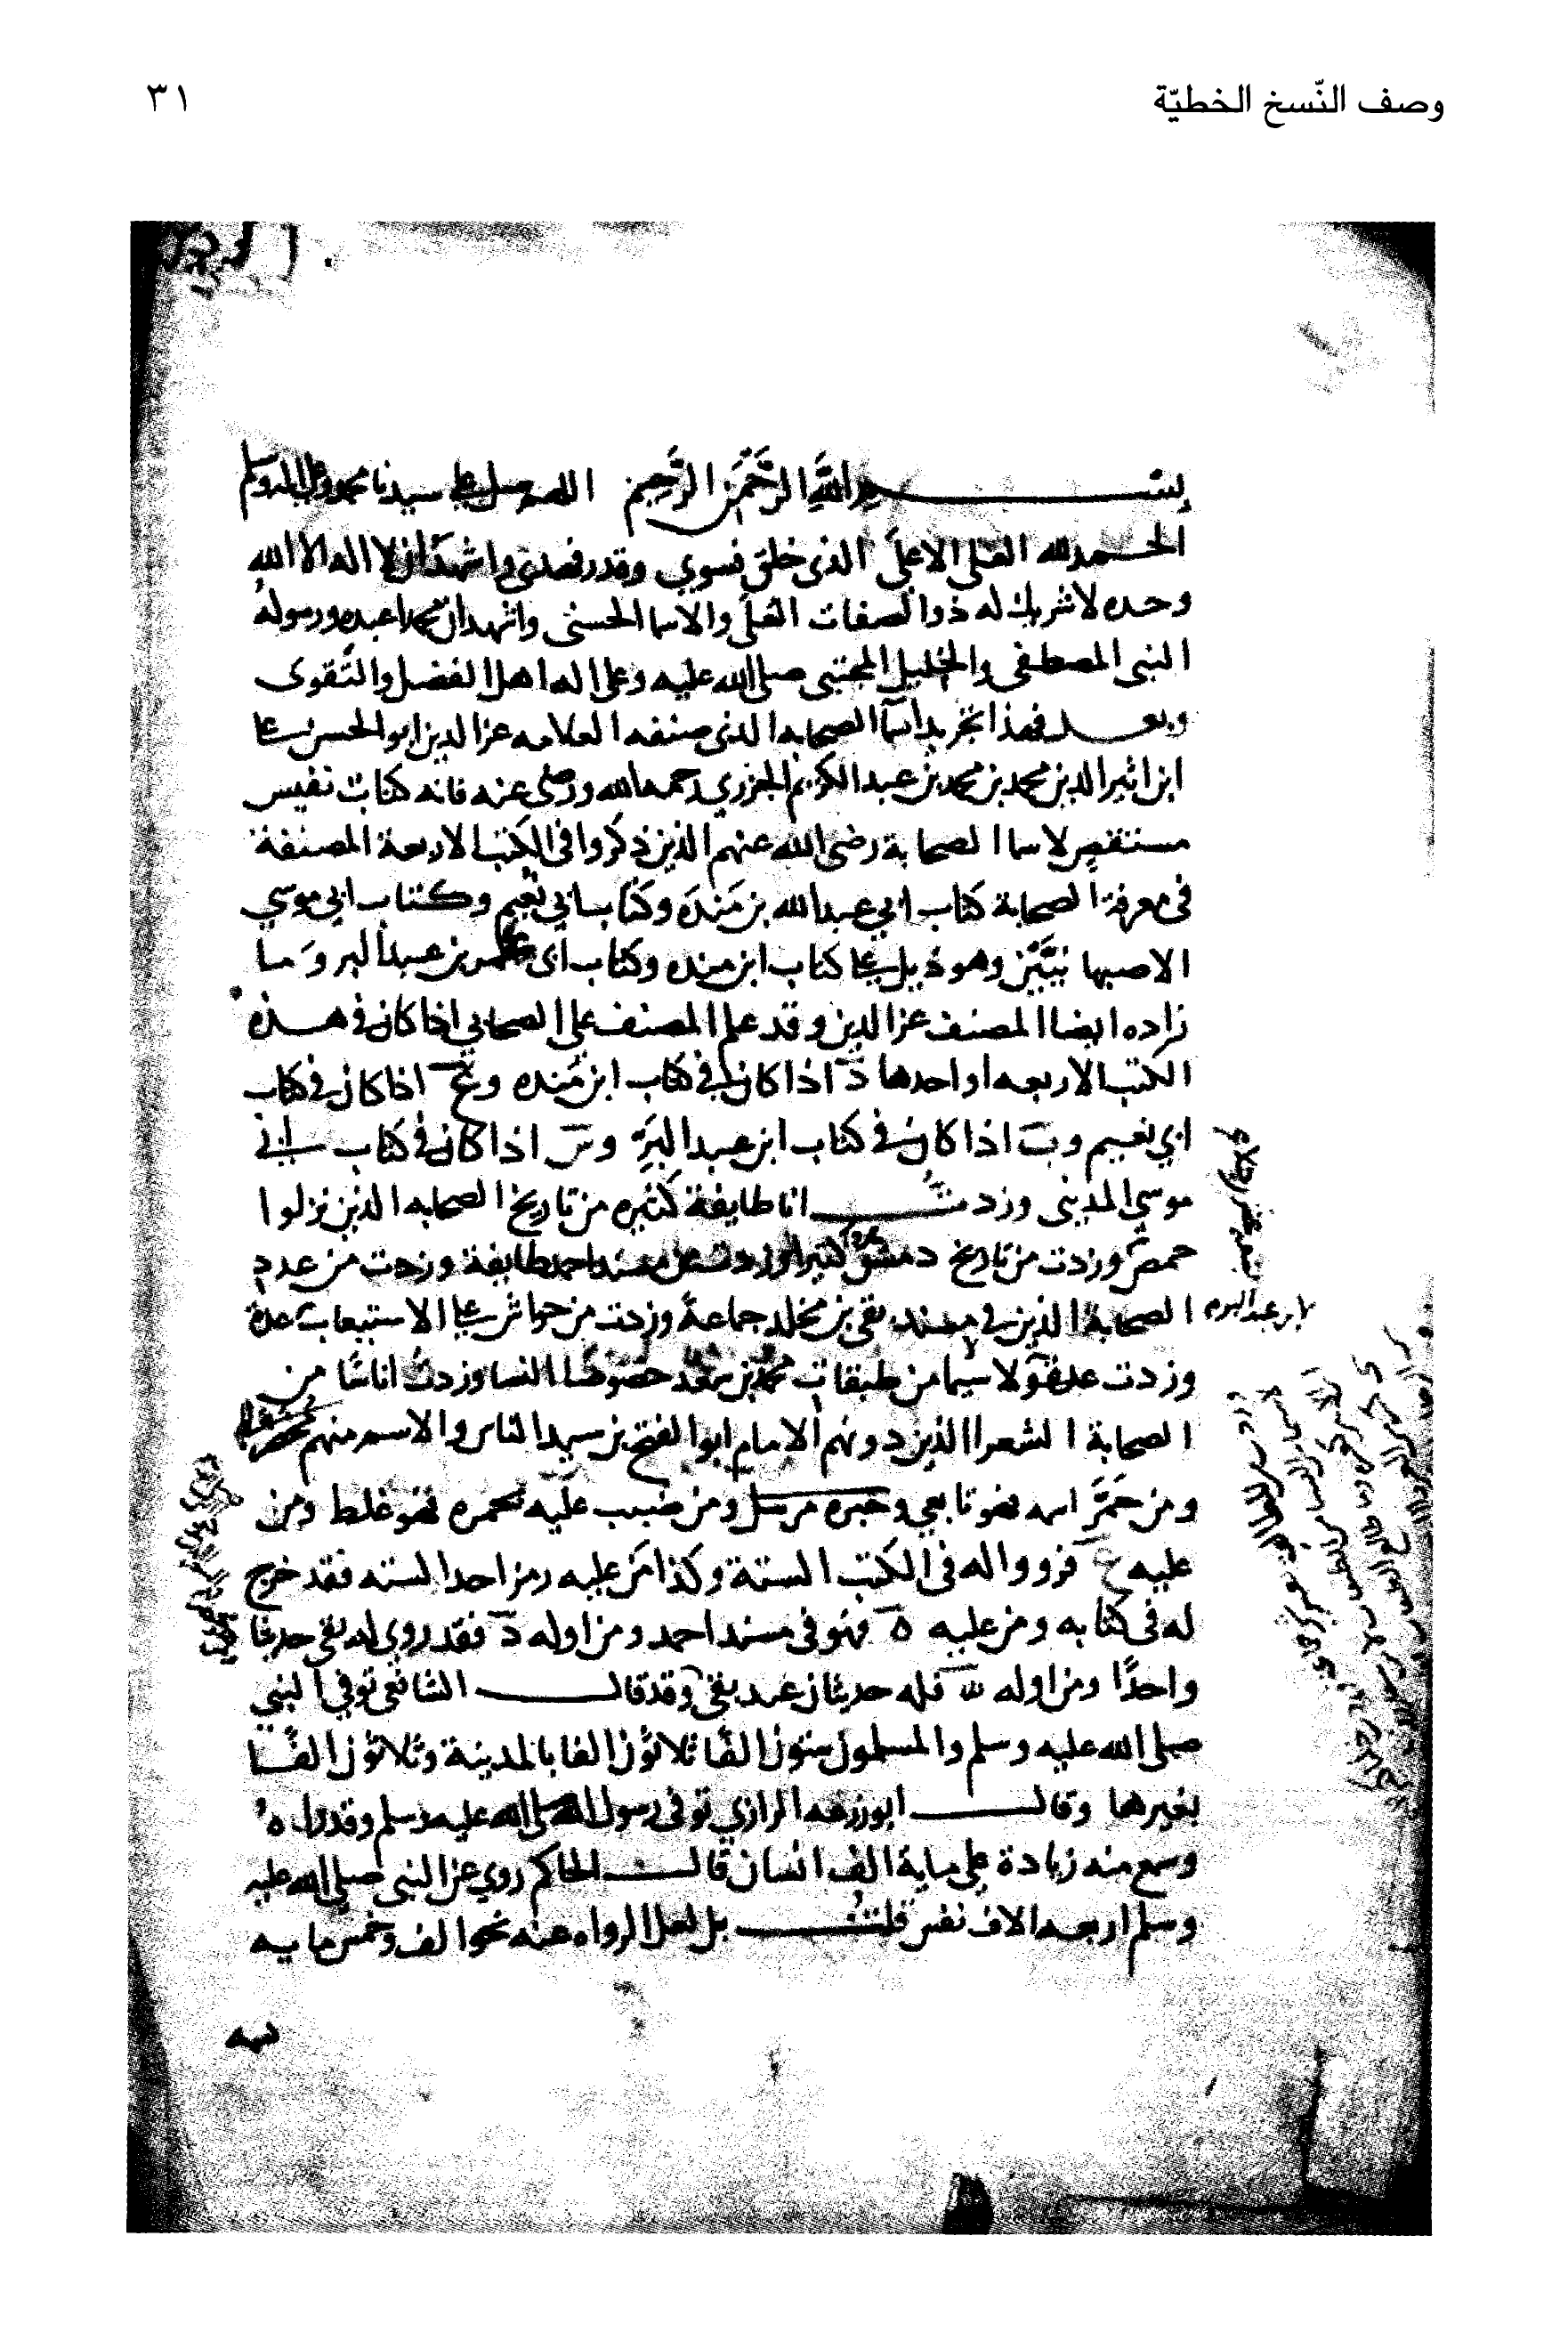 وصف النّسخ الخطيّة
٣١
بسم الله الرَّحْمَنِ الرَّحِيم اللهم صل على سيدنا محمد وعلى اله وسلم
الحمد لله العلي الاعلَى الذى خلق فسوي وقدر فهدى واشهد ان لا اله الا الله
وحده لا شريك له ذو الصفات العُلَى والاسما الحسنى واشهد ان محمدا عبده ورسولهُ
النبى المصطفى والخليل المجتبى صلى الله عليه وعلى اله اهل الفضل والتَّقوى
وبعد فهذا تجريد اسآ الصحابه الذى صنفه العلامه عز الدين ابو الحسن على
ابن اثير الدين محمد بن محمد بن عبد الكريم الجزري رحمه الله ورضى عنه فانه كتابٌ نفيس
مستقصٍ لاسما الصحابة رضى الله عنهم الذين ذكروا فى الكتب الاربعة المصنفة
فى معرفة الصحابة كتاب ابي عبد الله بن مَندَه وكتاب ابي نُعيم وكتاب ابي موسي
الاصبهانيَّيْن وهو ذيل على كتاب ابن منده وكتاب ابى عمر بن عبد البر وَما
زاده ايضا المصنف عز الدين وقد علم المصنف على الصحابي اذا كان في هذه
الكتب الاربعه او احدها د اذا كان في كتاب ابن مَنده وع اذا كان في كتاب
ابي نعيم وب اذا كان في كتاب ابن عبد البَرِّ وس اذا كان في كتاب ابي
موسى المديني وزدتُ انا طايفة كثيره من تاريخ الصحابه الذين نزلوا
حمص وزدت من تاريخ دمشق كثيرا وزدت من مسند احمد طايفة وزدت من عدد
الصحابة الذين في مسند بقى بن مخلد جماعةً وزدت من حواشى على الاستيعاب عدة
لابن عبد البر
وزدت عدة ولا سيما من طبقات محمد بن سعد خصوصًا النسا وزدتُ اناسًا من
الصحابة الشعرا الذين دونهم الامام ابو الفتح بن سيد الناس والاسم منهم
ومن حَمَّرَ اسمه فهو تابعي وخبره مرسل ومن ضبب عليه بحمره فهو غلط ومن
عليه ع فرووا له فى الكتب الستة وكذا مَن عليه رمز احد السته فقد خرج
له فى كتابه ومن عليه ه فهو فى مسند احمد ومن اوله د فقد روي له بقى حديثا
واحدًا ومن اوله لله فله حديثان عند بقى وقد قال الشافعى توفي النبي
صلى الله عليه وسلم والمسلمون ستون الفًا ثلاثون الفا بالمدينة وثلاثون الفًا
بغيرها وقال ابو زرعه الرازي توفى رسول الله صلى الله عليه وسلم وقد راه
وسمع منه زيادة على ماية الف انسان قال الحاكم روي عن النبى صلى الله عليه
وسلم اربعه الاف نفس قلتُ بل لعل الرواه عنه نحو الف وخمس مايه